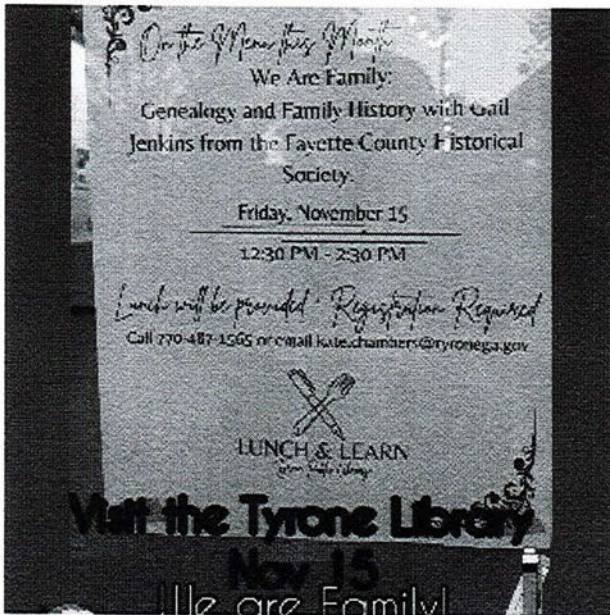 On the Menu this Month
We Are Family:
Genealogy and Family History with Gail
Jenkins from the Fayette County Historical
Society.
Friday, November 15
12:30 PM - 2:30 PM
Lunch will be provided - Registration Required
Call 770-487-1565 or email kate.chambers@tyronega.gov
LUNCH & LEARN
Visit the Tyrone Library
Nov 15
We are Family!